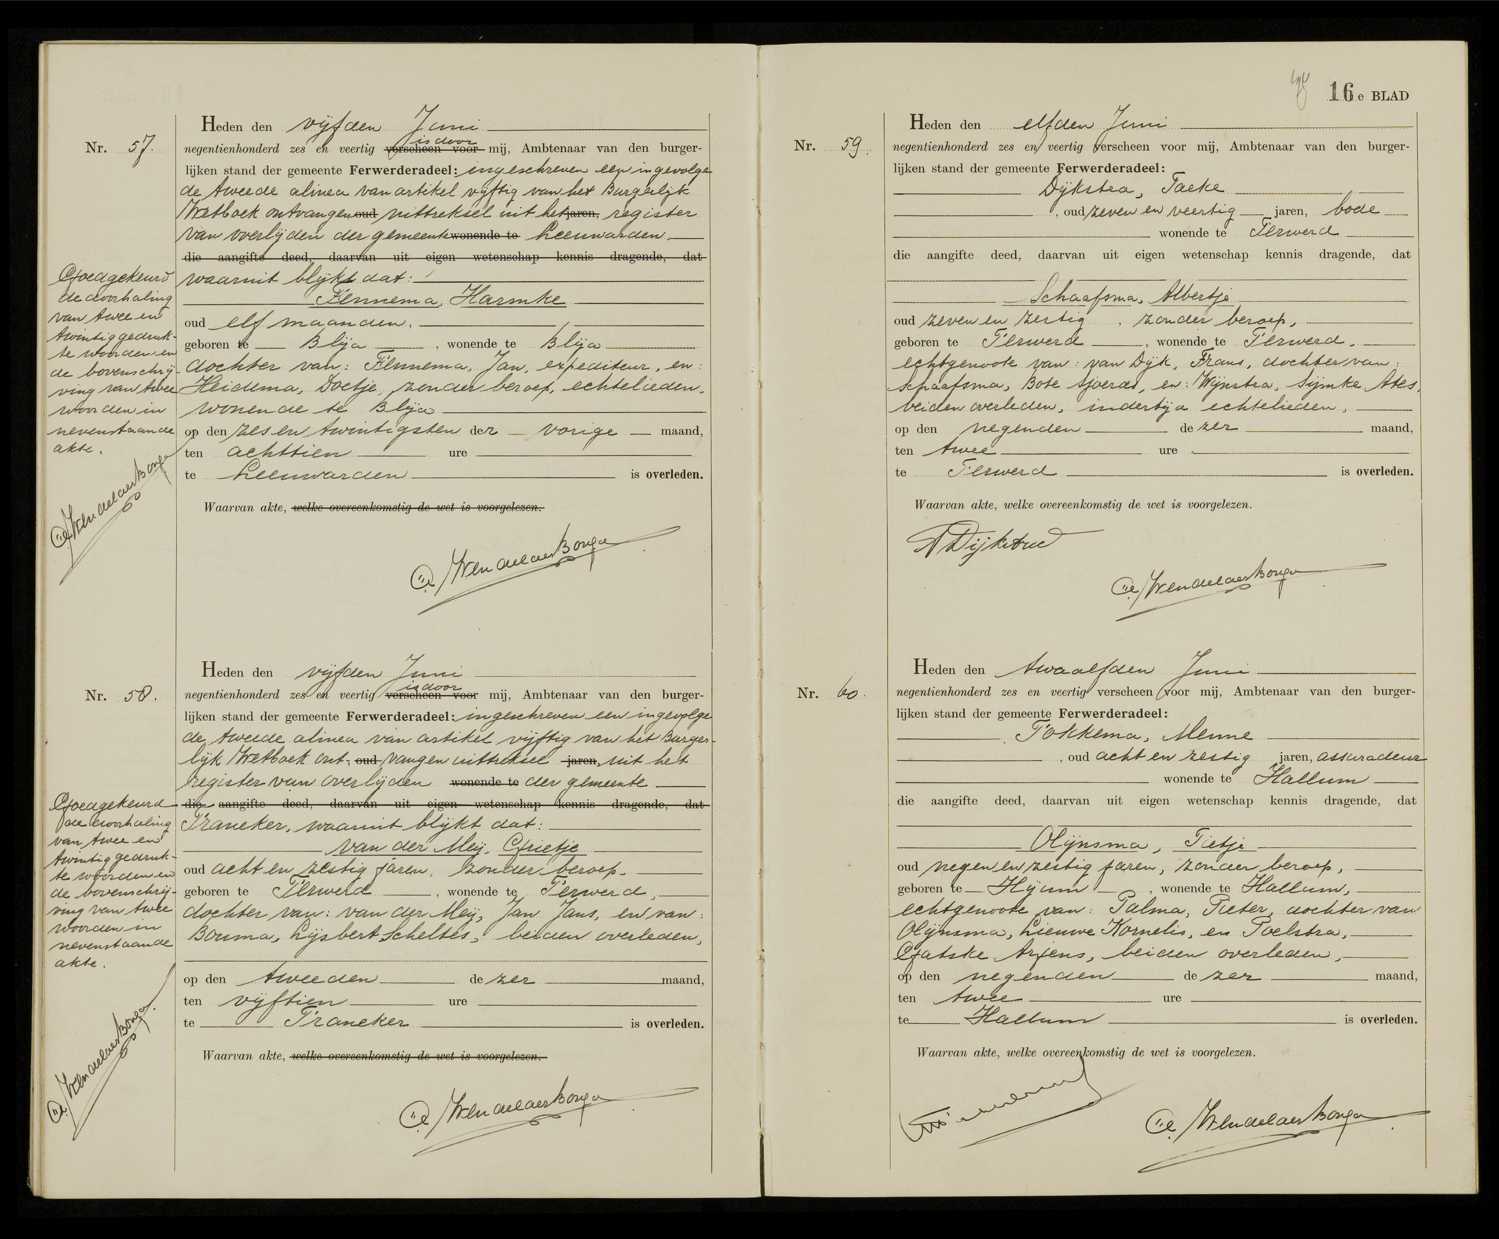 Nr. 57.
Heden den vijfden Juni
is door
negentienhonderd zes en veertig verscheen voor mij, Ambtenaar van den burger-
lijken stand der gemeente Ferwerderadeel: ingeschreven een ingevolge
de tweede alinea van artikel vijftig van het Burgerlijk
Wetboek ontvangen oud uittreksel uit het jaren, register
van overlijden der gemeente wonende te Leeuwarden
die aangifte deed, daarvan uit eigen wetenschap kennis dragende, dat
waaruit blijkt dat:
Fennema, Harmke
oud elf maanden,
geboren te Blija, wonende te Blija
dochter van: Fennema, Jan, expediteur, en:
Heidema, Doetje, zonder beroep, echtelieden,
wonende te Blija
op den zes en twintigsten der vorige maand,
ten achttien ure
te Leeuwarden is overleden.
Waarvan akte, welke overeenkomstig de wet is voorgelezen.
Goedgekeurd
de doorhaling
van twee en
twintig gedruk-
te woorden en
de bovenschrij-
ving van twee
woorden in
nevenstaande
akte.
Nr. 58.
Heden den vijfden Juni
is door
negentienhonderd zes en veertig verscheen voor mij, Ambtenaar van den burger-
lijken stand der gemeente Ferwerderadeel: ingeschreven een ingevolge
de tweede alinea van artikel vijftig van het Burger-
lijk Wetboek ont- oud vangen uittreksel jaren, uit het
register van overlijden wonende te der gemeente
die aangifte deed, daarvan uit eigen wetenschap kennis dragende, dat
Franeker, waaruit blijkt dat:
van der Meij, Grietje
oud acht en zestig jaren, zonder beroep,
geboren te Ferwerd, wonende te Ferwerd,
dochter van: van der Meij, Jan Jans, en van:
Bouma, Lijsbert Scheltes, beiden overleden,
op den tweeden de zer maand,
ten vijftien ure
te Franeker is overleden.
Waarvan akte, welke overeenkomstig de wet is voorgelezen.
Goedgekeurd
de doorhaling
van twee en
twintig gedruk-
te woorden en
de bovenschrij-
ving van twee
woorden in
nevenstaande
akte.
16e BLAD
Nr. 59.
Heden den elfden Juni
negentienhonderd zes en veertig verscheen voor mij, Ambtenaar van den burger-
lijken stand der gemeente Ferwerderadeel:
Dijkstra, Taeke
, oud zeven en veertig jaren, bode
wonende te Ferwerd
die aangifte deed, daarvan uit eigen wetenschap kennis dragende, dat
Schaafsma, Albertje
oud zeven en zestig, zonder beroep,
geboren te Ferwerd, wonende te Ferwerd,
echtgenoote van: van Dijk, Frans, dochter van:
Schaafsma, Bote Sjoerds, en: Wijnstra, Sijmke Ates,
beiden overleden, indertijd echtelieden,
op den negenden de zer maand,
ten twee ure
te Ferwerd is overleden.
Waarvan akte, welke overeenkomstig de wet is voorgelezen.
Nr. 60.
Heden den twaalfden Juni
negentienhonderd zes en veertig verscheen voor mij, Ambtenaar van den burger-
lijken stand der gemeente Ferwerderadeel:
Fokkema, Menne
, oud acht en zestig jaren, assuradeur
wonende te Hallum
die aangifte deed, daarvan uit eigen wetenschap kennis dragende, dat
Olijnsma, Tietje
oud negen en zestig jaren, zonder beroep,
geboren te Hijum, wonende te Hallum,
echtgenoote van: Palma, Pieter, dochter van
Olijnsma, Lieuwe Kornelis, en Poelstra,
Gatske Arjens, beiden overleden,
op den negenden de zer maand,
ten twee ure
te Hallum is overleden.
Waarvan akte, welke overeenkomstig de wet is voorgelezen.